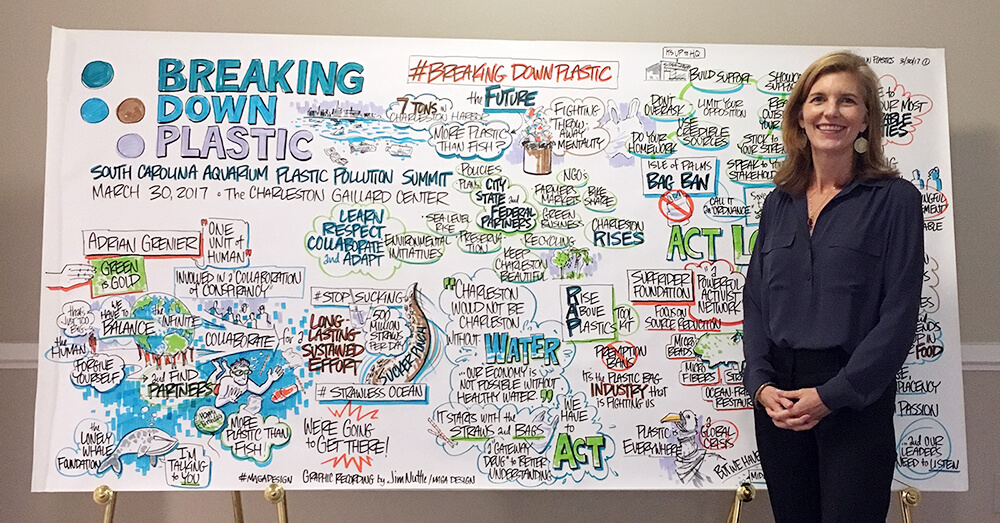 BREAKING
DOWN
PLASTIC
SOUTH CAROLINA AQUARIUM PLASTIC POLLUTION SUMMIT
MARCH 30, 2017 • THE CHARLESTON GAILLARD CENTER
ADRIAN GRENIER
"ONE
UNIT of
HUMAN"
GREEN
is GOLD
INVOLVED IN a COLLABORATION
of CONSPIRANCY"
WE
HAVE to
BALANCE
the
INFINITE
the
HUMAN
COLLABORATE
for a
LONG-
LASTING
SUSTAINED
EFFORT
FORGIVE
YOURSELF
and FIND
PARTNERS
MORE
PLASTIC THAN
FISH!
the
LONELY
WHALE
FOUNDATION
I'M
TALKING
to YOU
#STOP SUCKING
500
MILLION
STRAWS
PER DAY
SUCKER PUNCH
#STRAWLESS OCEAN
WE'RE
GOING
to GET THERE!
#MAGADESIGN
GRAPHIC RECORDING by JIM NUTTLE / MIGA DESIGN
#BREAKING DOWN PLASTIC
the FUTURE
7 TONS in
CHARLESTON HARBOR
MORE PLASTIC
THAN FISH?
FIGHTING
THROW-
AWAY
MENTALITY
LEARN
RESPECT
COLLABORATE
and ADAPT
POLICIES
PLANS
CITY
STATE and
FEDERAL
PARTNERS
NGOs
FARMERS
MARKET
BIKE
SHARE
GREEN
BUSINESS
•SEA LEVEL
RISE
ENVIRONMENTAL
INITIATIVES
PRESERVATION
RECYCLING
CHARLESTON
RISES
KEEP
CHARLESTON
BEAUTIFUL
"CHARLESTON
WOULD NOT BE
CHARLESTON
WITHOUT
WATER
OUR ECONOMY IS
NOT POSSIBLE WITHOUT
HEALTHY WATER."
IT STARTS WITH the
STRAWS and BAGS
a "GATEWAY
DRUG" to BETTER
UNDERSTANDING
WE
HAVE
to
ACT
RAP
RISE
ABOVE
PLASTICS
TOOL
KIT
PREEMPTION
BANS
IT'S the PLASTIC BAG
INDUSTRY that
is FIGHTING US
PLASTIC is
EVERYWHERE
a GLOBAL
CRISIS
IT'S UP to HQ
BUILD SUPPORT
DON'T
OVERASK
LIMIT YOUR
OPPOSITION
DO YOUR
HOMEWORK
USE
CREDIBLE
SOURCES
STICK to
SPEAK to
ISLE of PALMS
BAG BAN
CALL IT
an ORDINANCE
SURFRIDER
FOUNDATION
a
POWERFUL
ACTIVIST
NETWORK
FOCUS on
SOURCE REDUCTION
MICRO
BEADS
MICRO
FIBERS
3/30/17 ①
in FOOD
PASSION
...and OUR
LEADERS
NEED to LISTEN